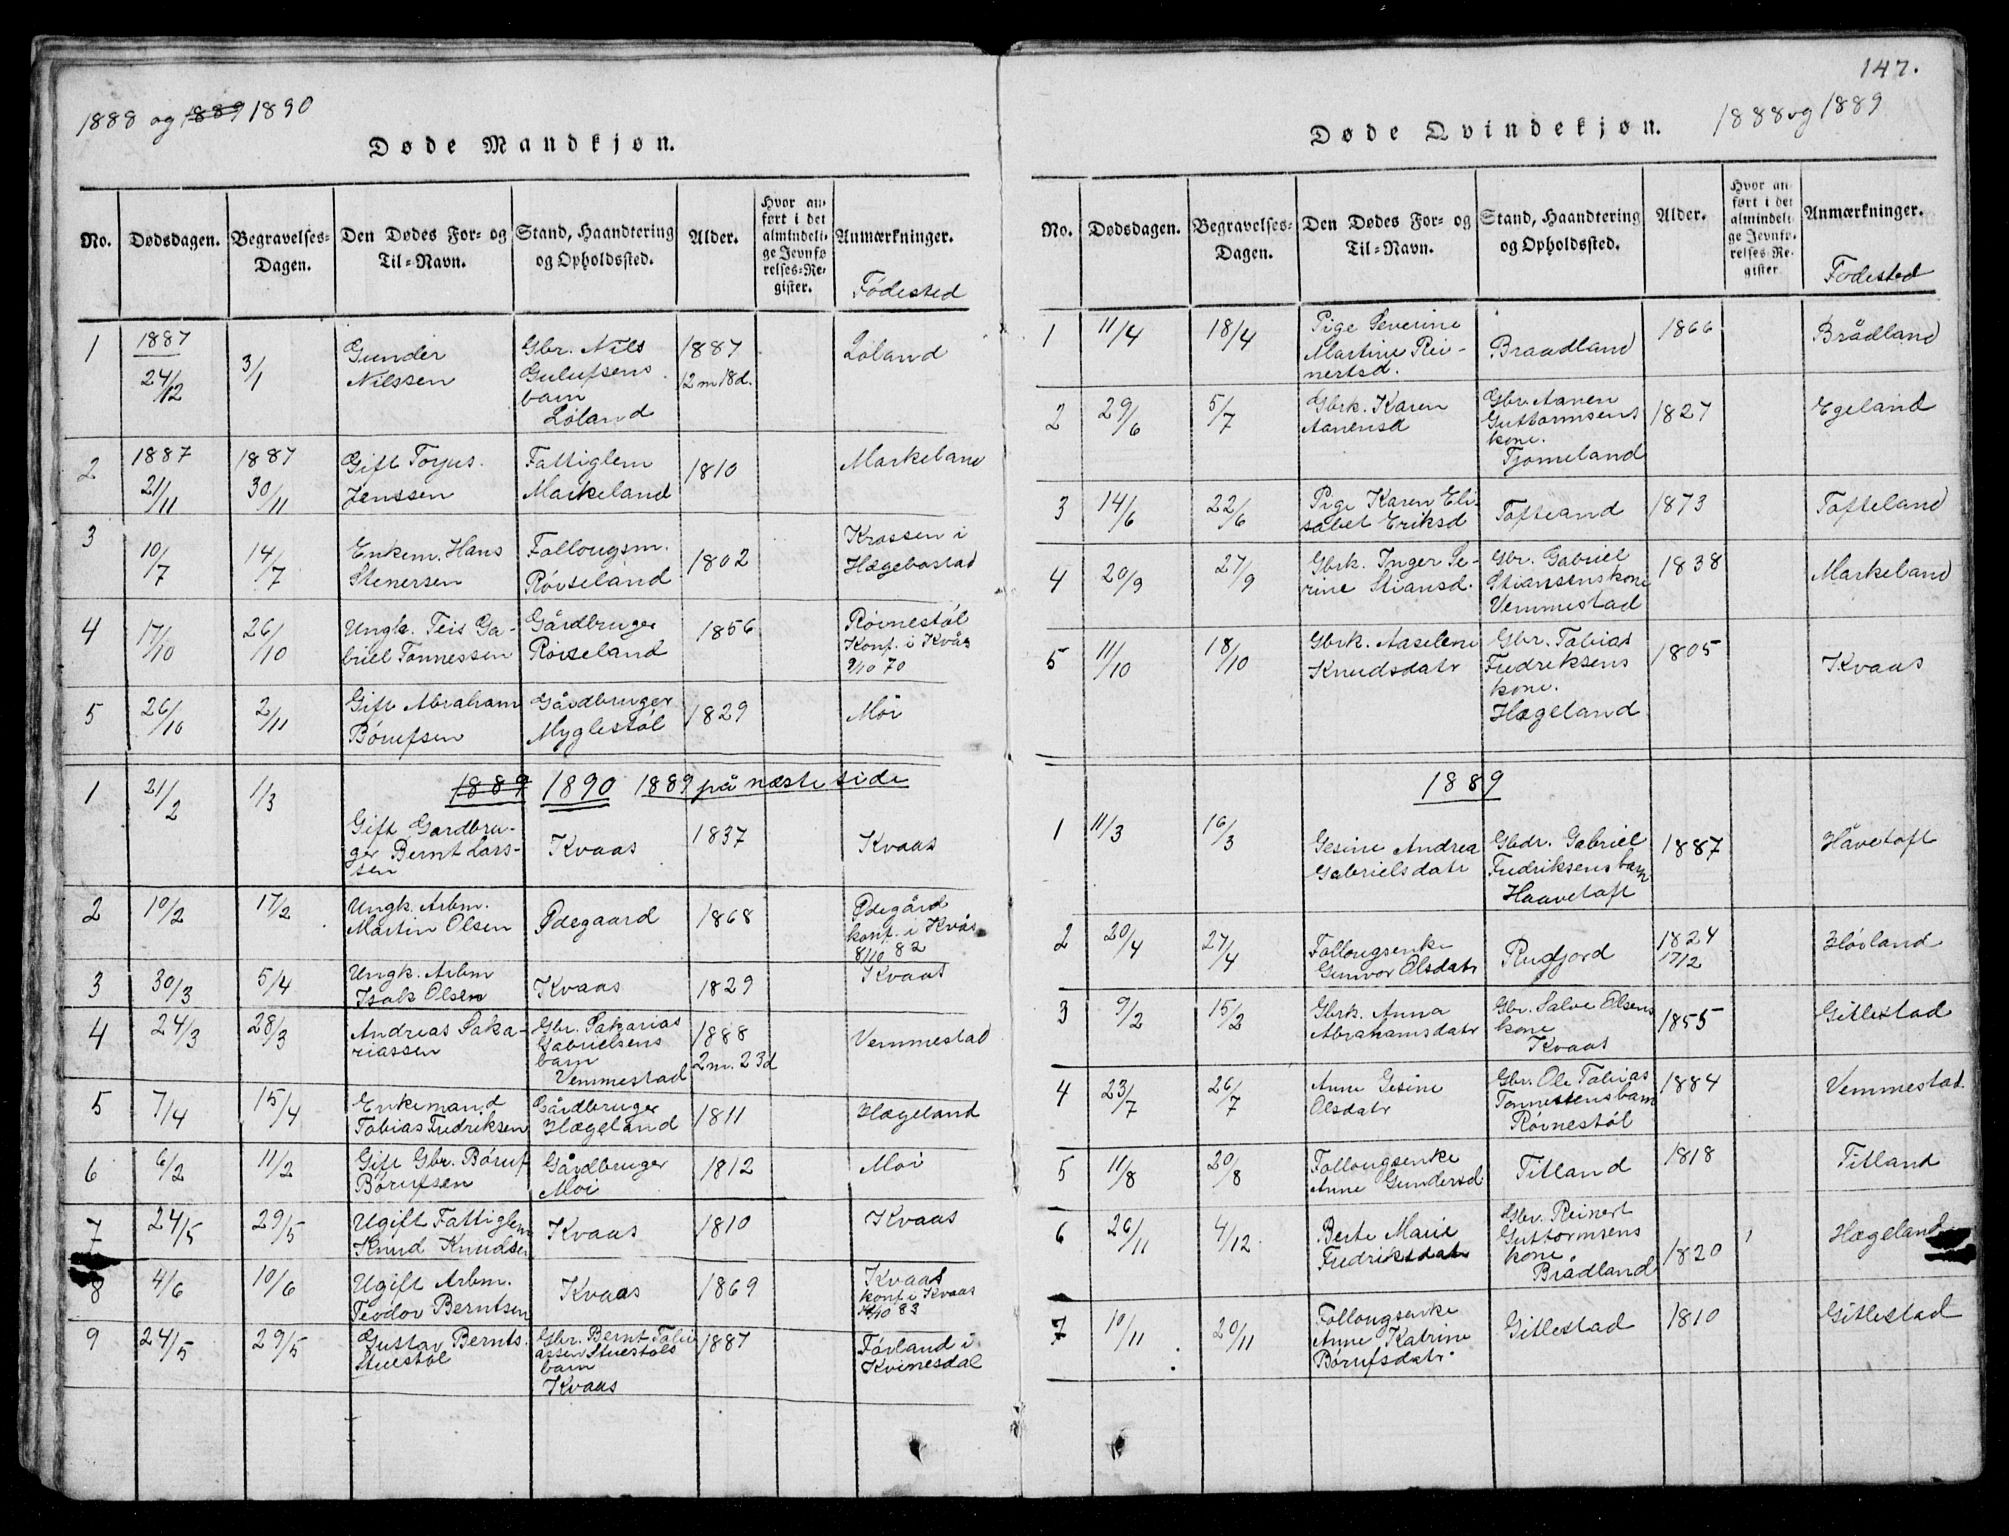 147.
1888 og 1889 1890
Døde Mandkjøn.
No. Dødsdagen. Begravelses-Dagen. Den Dødes For- og Til-Navn. Stand, Haandtering og Opholdssted. Alder. Hvor anført i det almindelige Jevnførelses-Register. Anmærkninger. Födested
1 1887 24/12 3/1 Gunder Nilssen Gbr. Nils Gulufsens barn Löland 1887 12 m 18 d. Löland
2 1887 21/11 1887 30/11 Gift Torjus Jenssen Fattiglem Markeland 1810 Markeland
3 10/7 14/7 Enkem. Hans Stenersen Follougsm. Röiseland 1802 Krossen i Hægebostad
4 17/10 26/10 Ungk. Teis Gabriel Tönnessen Gårdbruger Röiseland 1856 Röinestöl Konf. i Kvås 9/10 70
5 26/10 2/11 Gift Abraham Börufsen Gårdbruger Myglestöl 1829 Moi
1889 1890 1889 på næste side
1 21/2 1/3 Gift Gardbruger Bernt Larssen Kvaas 1837 Kvaas
2 10/2 17/2 Ungk. Arbm. Martin Olsen Ødegaard 1868 Ødegård konf. i Kvås 8/10 82
3 30/3 5/4 Ungk. Arbm Isak Olsen Kvaas 1829 Kvaas
4 24/3 28/3 Andreas Sakariassen Gbr. Sakarias Gabrielsens barn Vemmestad 1888 2 m. 23 d Vemmestad
5 7/4 15/4 Enkemand Tobias Fredriksen Gårdbruger Hægeland 1811 Hægeland
6 6/2 11/2 Gift Gbr. Böruf Börufsen Gårdbruger Moi 1812 Moi
7 24/5 29/5 Ugift Fattiglem Knud Knudsen Kvaas 1810 Kvaas
8 4/6 10/6 Ugift Arbm. Teodor Berntsen Kvaas 1869 Kvaas konf. i Kvaas 83
9 24/5 29/5 Gustav Bernts. Stuestöl Gbr. Bernt Tobiassen Stuestöls barn Kvaas 1887 Föland i Kvinesdal
Døde Qvindekjøn. 1888 og 1889
No. Dødsdagen. Begravelses-Dagen. Den Dødes For- og Til-Navn. Stand, Haandtering og Opholdssted. Alder. Hvor anført i det almindelige Jevnførelses-Register Anmærkninger. Fodested
1 11/4 18/4 Pige Severine Martine Reinertsd. Braadland 1866 Brådland
2 29/6 5/7 Gbrk. Karen Aanensd Gbr. Aanen Guttormsens kone. Tjomeland 1827 Egeland
3 14/6 22/6 Pige Karen Elisabet Eriksd Tofteand 1873 Tofteland
4 20/9 27/9 Gbrk. Inger Serine Stiansd. Gbr. Gabriel Stiansens kone Vemmestad 1838 Markeland
5 11/10 18/10 Gbrk. Aaselene Knudsdatr Gbr. Tobias Fredriksens kone. Hægeland 1805 Kvaas
1889
1 11/3 16/3 Gesine Andrea Gabrielsdatr Gbdr. Gabriel Fredriksens barn Haavetoft 1887 Håvetoft
2 20/4 27/4 Follougsenke Gunvor Olsdatr Rugjord 1824 17/2 Hövland
3 9/2 15/2 Gbrk. Anna Abrahamsdatr Gbr. Salve Olsens kone Kvaas 1855 Gitlestad
4 23/7 26/7 Anne Gesine Olsdatr Gbr. Ole Tobias Tönnessens barn Röinestöl 1884 Vemmestad
5 11/8 20/8 Follougsenke Anne Gundersd Titland 1818 Titland
6 26/11 4/12 Berte Marie Fredriksdatr Gbr. Reinert Guttormsens kone Brådland 1820 Hægeland
7 10/11 20/11 Follougsenke Anne Katrine Börufsdatr. Gitlestad 1810 Gitlestad